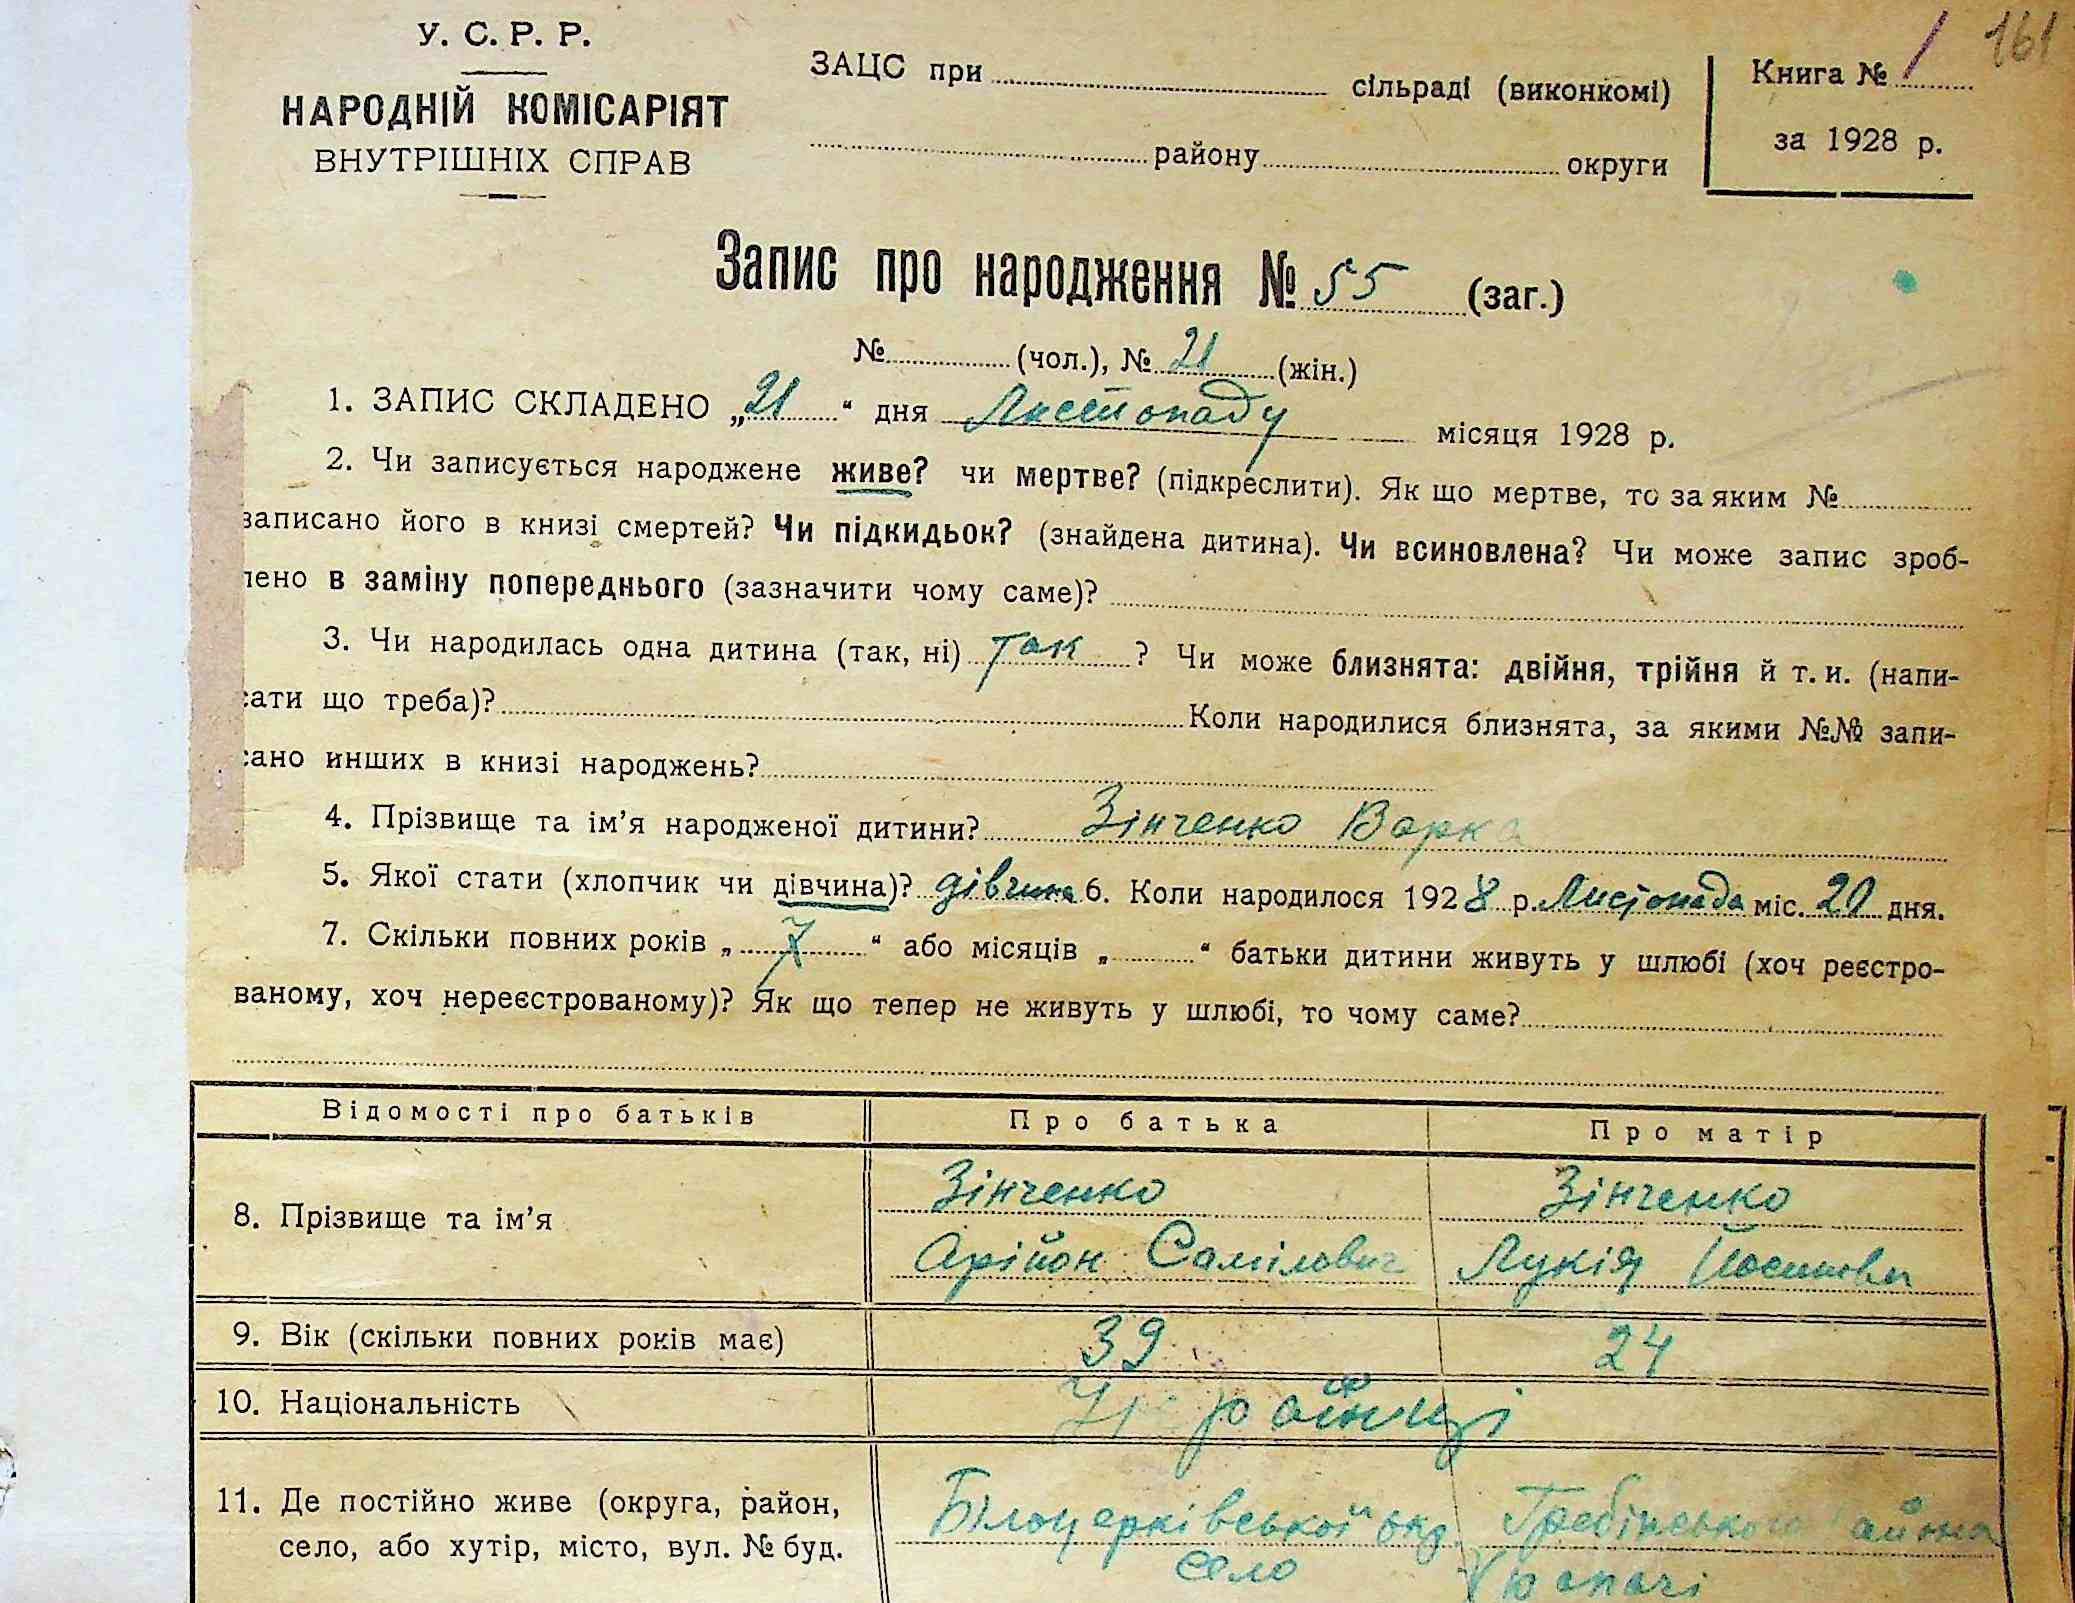 161
У. С. Р. Р.
НАРОДНІЙ КОМІСАРІЯТ
ВНУТРІШНІХ СПРАВ
ЗАЦС при сільраді (виконкомі)
району округи
Книга № 1
за 1928 р.
Запис про народження № 55 (заг.)
№ (чол.), № 21 (жін.)
1. ЗАПИС СКЛАДЕНО „21“ дня Листопаду місяця 1928 р.
2. Чи записується народжене живе? чи мертве? (підкреслити). Як що мертве, то за яким №
записано його в книзі смертей? Чи підкидьок? (знайдена дитина). Чи всиновлена? Чи може запис зроб-
лено в заміну попереднього (зазначити чому саме)?
3. Чи народилась одна дитина (так, ні) так ? Чи може близнята: двійня, трійня й т. и. (напи-
сати що треба)? Коли народилися близнята, за якими №№ запи-
сано инших в книзі народжень?
4. Прізвище та ім’я народженої дитини? Зінченко Варка
5. Якої стати (хлопчик чи дівчина)? дівчина 6. Коли народилося 1928 р. Листопада міс. 20 дня.
7. Скільки повних років „7“ або місяців „ “ батьки дитини живуть у шлюбі (хоч реєстро-
ваному, хоч нереєстрованому)? Як що тепер не живуть у шлюбі, то чому саме?
Відомості про батьків Про батька Про матір
8. Прізвище та ім’я Зінченко Зінченко
Арійон Самілович Лукія
9. Вік (скільки повних років має) 39 24
10. Національність Українці
11. Де постійно живе (округа, район, Білоцерківської окр Гребінського района
село, або хутір, місто, вул. № буд. село